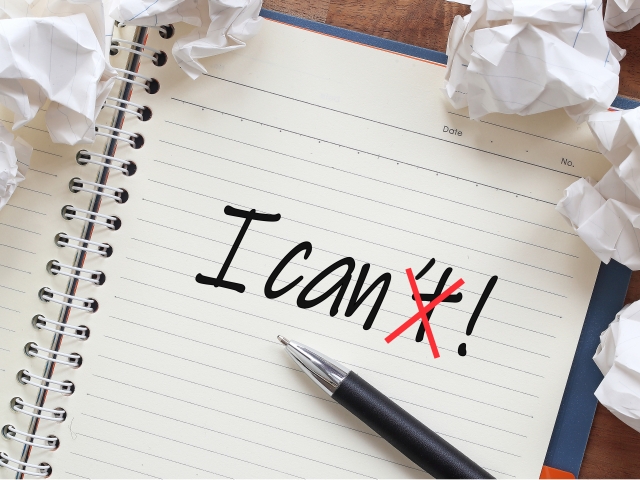 Date
No.
I can't!